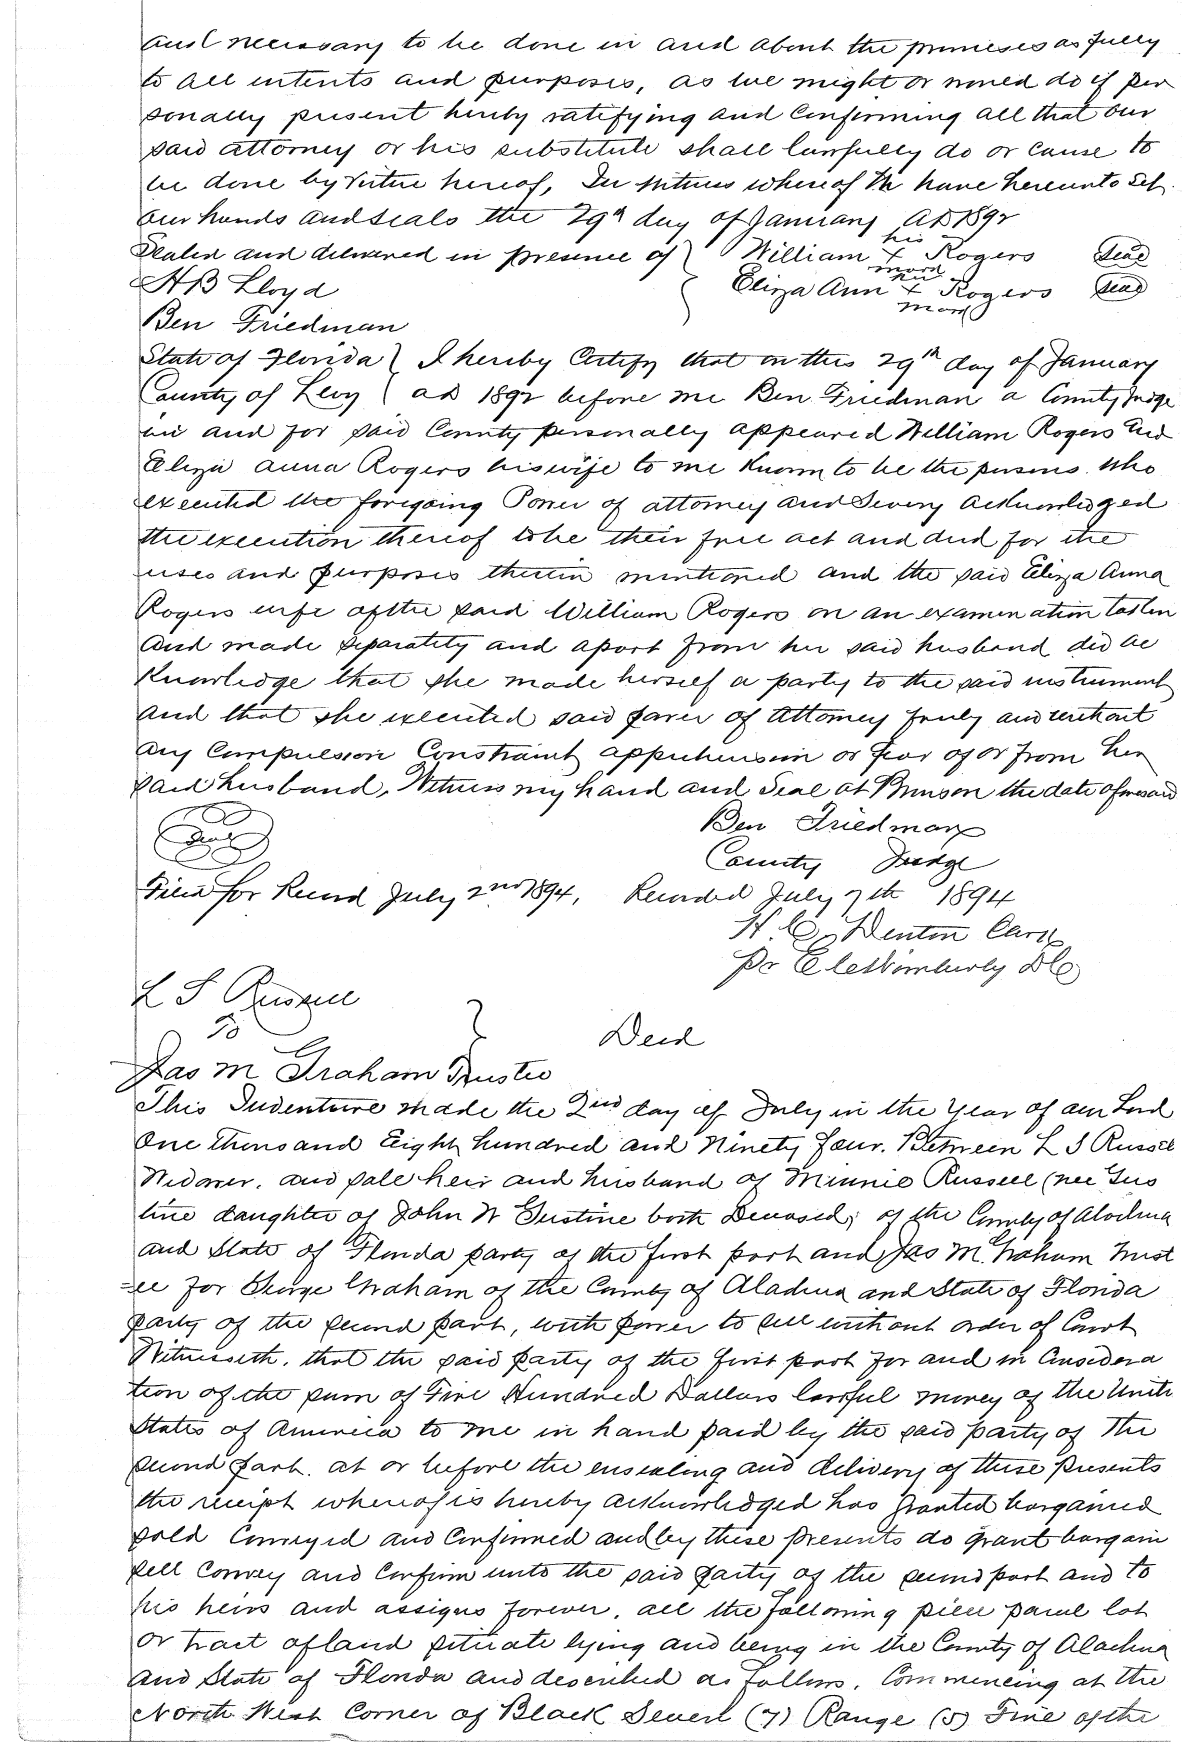 and necessary to be done in and about the premises as fully
to all intents and purposes, as we might or would do if per
sonally present hereby ratifying and Confirming all that our
said attorney or his substitute shall lawfully do or cause to
be done by virtue hereof, In witness whereof We have hereunto set
our hands and seals the 29th day of January AD 1892
Sealed and delivered in presence of } William his x mark Rogers Seal
H B Lloyd { Eliza Ann her x mark Rogers Seal
Ben Friedman
State of Florida } I hereby Certify that on this 29th day of January
County of Levy } AD 1892 before me Ben Friedman a County Judge
in and for said County personally appeared William Rogers and
Eliza Anna Rogers his wife to me Known to be the persons who
executed the foregoing Power of attorney and Severy acknowledged
the execution thereof to be their free act and deed for the
uses and purposes therein mentioned and the said Eliza Anna
Rogers wife of the said William Rogers on an examination taken
and made separately and apart from her said husband did ac
Knowledge that she made herself a party to the said instrument
and that she executed said power of Attorney freely and without
any Compulsion Constraint apprehension or fear of or from her
said husband, Witness my hand and Seal at Bronson the date aforesaid
Seal Ben Friedman
County Judge
Filed for Record July 2nd 1894, Recorded July 7th 1894
H. C. Denton Clerk
Pr DC
L S Russell
To } Deed
Jas M Graham Trustee
This Indenture made the 2nd day of July in the Year of our Lord
One thousand Eight hundred and Ninety four. Between L S Russell
Widower, and sole heir and husband of Minnie Russell (nee Gus
tine daughter of John W Gustine both Deceased; of the County of Alachua
and State of Florida party of the first part and Jas M. Graham Trust
=ee for George Graham of the County of Alachua and State of Florida
party of the second part, with power to sell without order of Court
Witnesseth, that the said party of the first part for and in Considera
tion of the sum of Five Hundred Dollars lawful money of the Unite
States of America to me in hand paid by the said party of the
second part. at or before the ensealing and delivery of these presents
the receipt whereof is hereby acknowledged has granted bargained
sold Conveyed and Confirmed and by these presents do grant bargain
sell Convey and Confirm unto the said party of the second part and to
his heirs and assigns forever, all the following piece parcel lot
or tract of land situate lying and being in the County of Alachua
and State of Florida and described as follows. Commencing at the
North West Corner of Block Seven (7) Range (5) Five of the